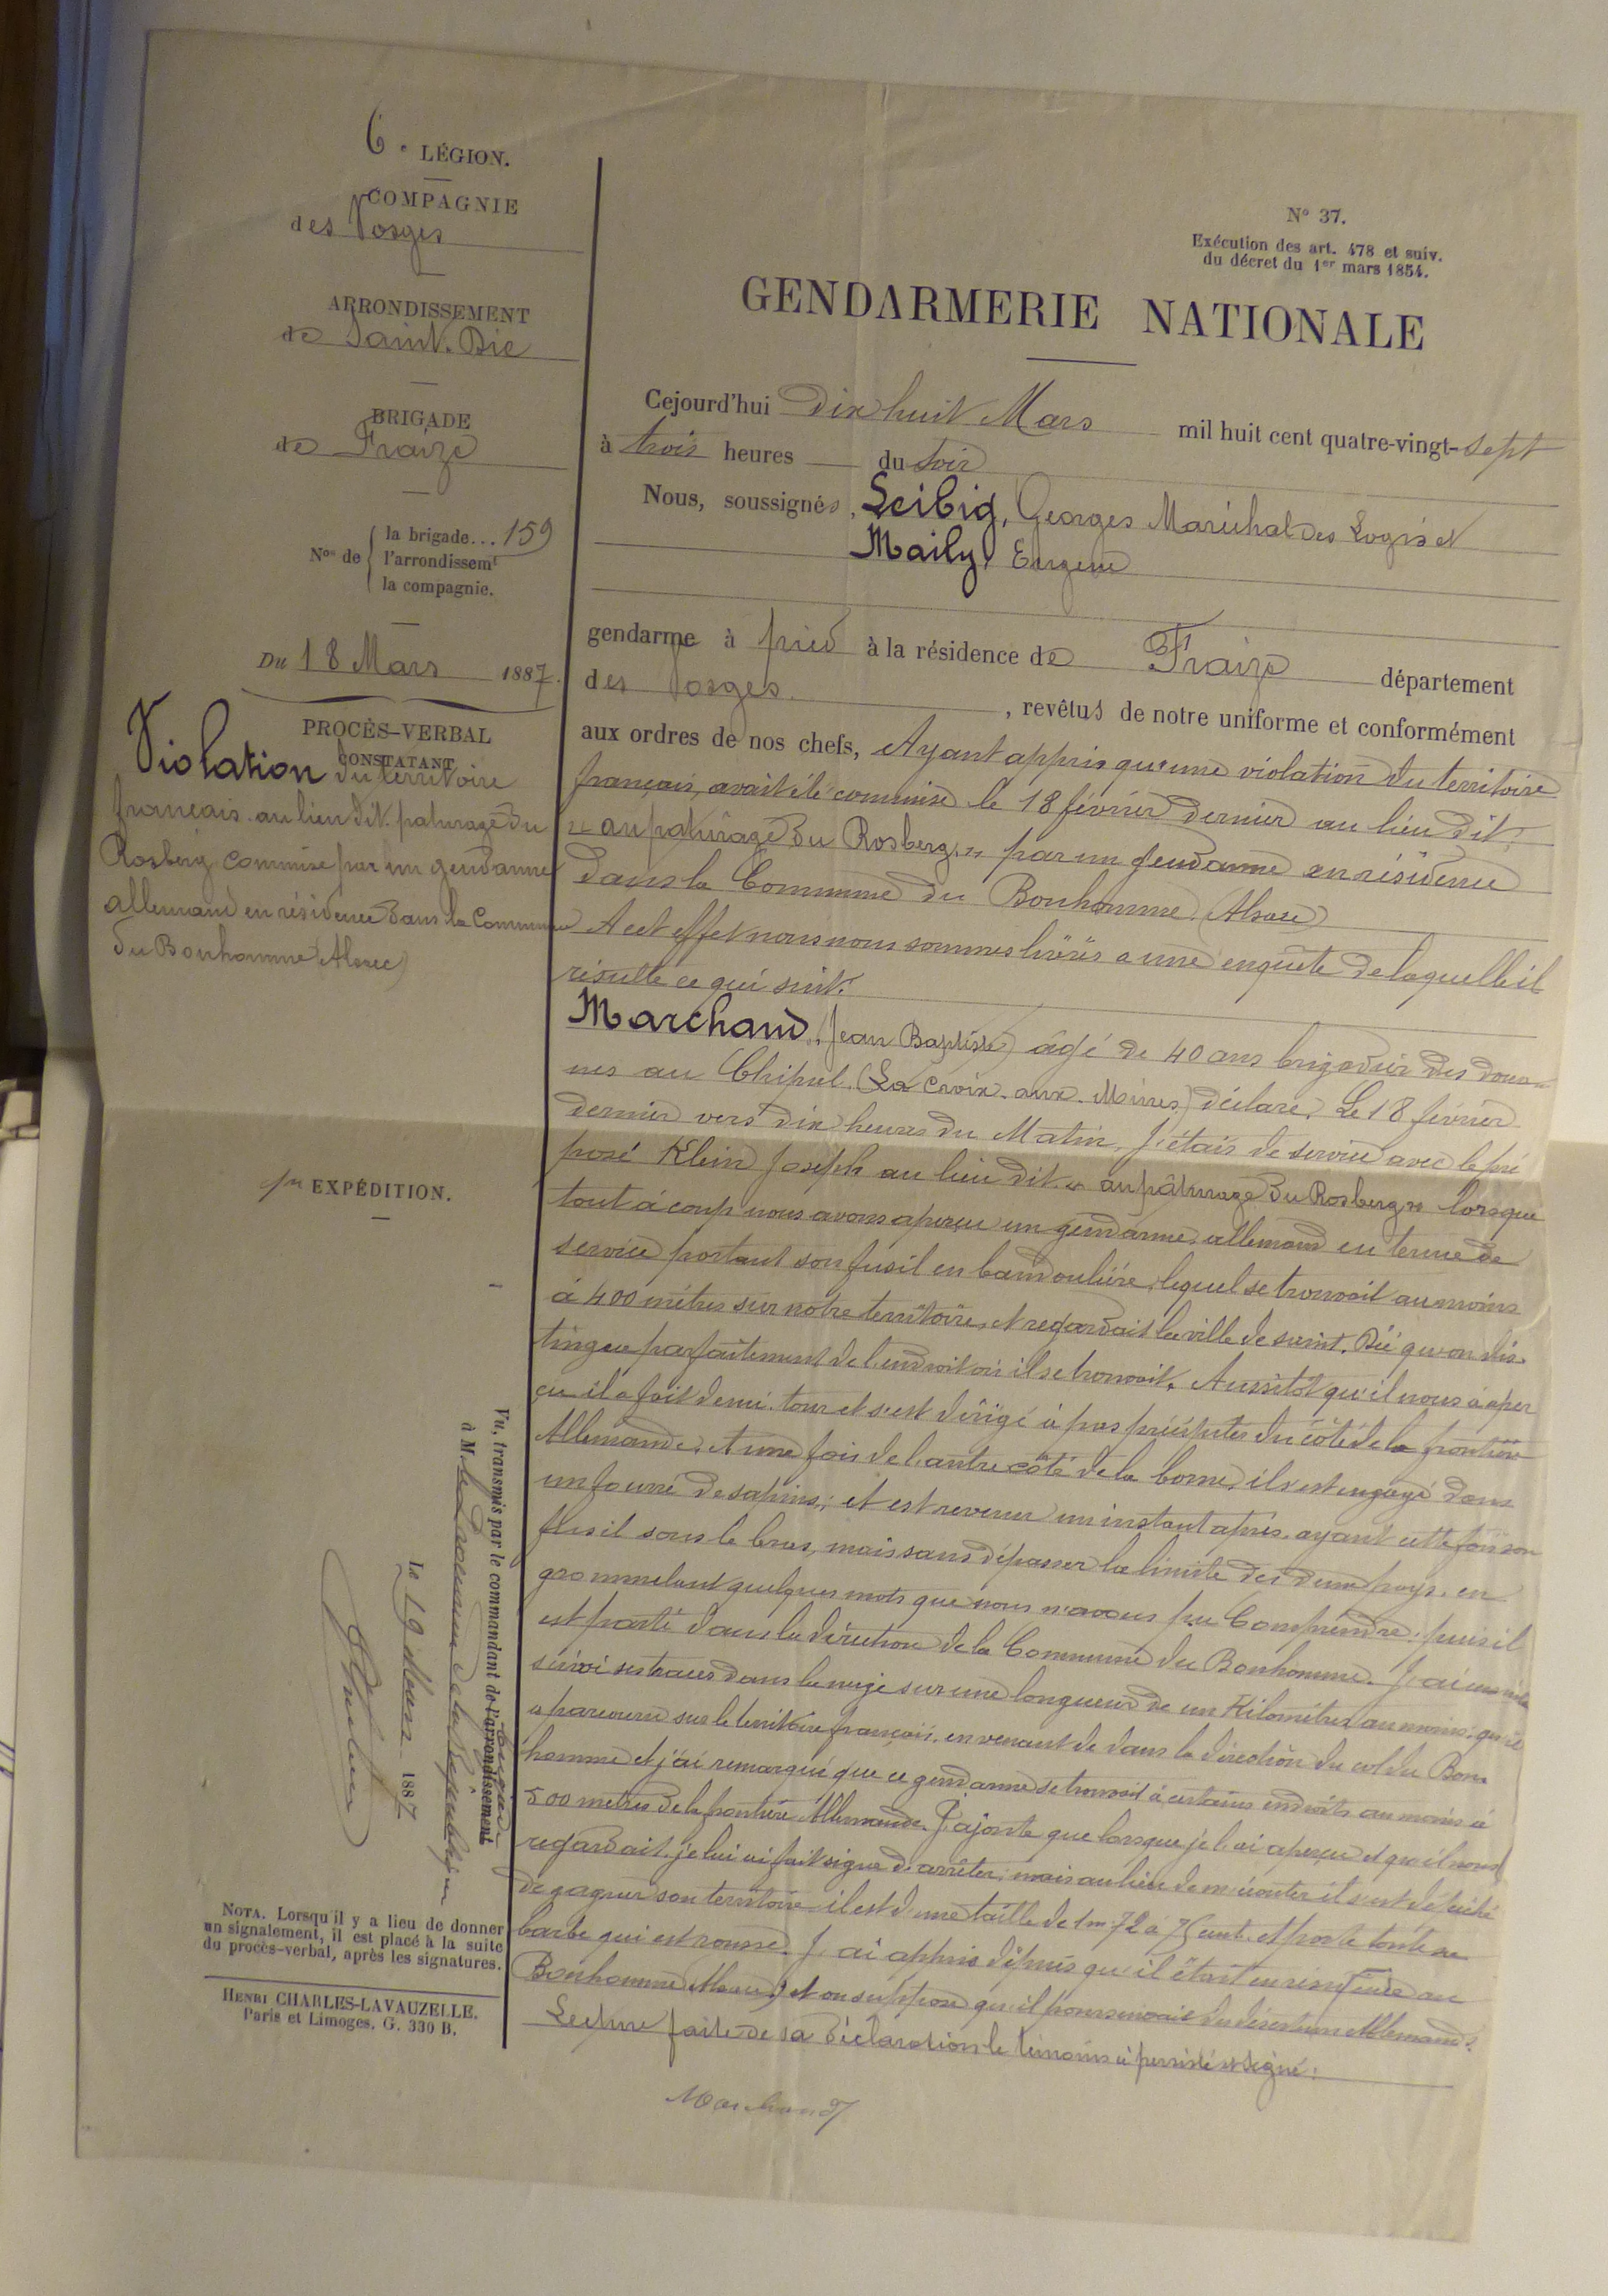 6e LÉGION.
COMPAGNIE
des Vosges
ARRONDISSEMENT
de Saint-Dié
BRIGADE
de Fraize
Nos de
la brigade... 159
l'arrondissemt
la compagnie.
Du 18 Mars 1887.
PROCÈS-VERBAL
CONSTATANT
Violation du territoire
français au lieu dit paturage du
Rosberg commise par un gendarme
allemand en résidence dans la Commune
du Bonhomme (Alsace)
EXPÉDITION.
Vu, transmis par le commandant de l'arrondissement
à M. le Procureur de la République
Le 19 Mars 1887
NOTA. Lorsqu'il y a lieu de donner
un signalement, il est placé à la suite
du procès-verbal, après les signatures.
HENRI CHARLES-LAVAUZELLE.
Paris et Limoges. G. 330 B.
N° 37.
Exécution des art. 478 et suiv.
du décret du 1er mars 1854.
GENDARMERIE NATIONALE
Cejourd'hui dix huit Mars mil huit cent quatre-vingt-sept
à trois heures du soir
Nous, soussignés, Leibig, Georges Maréchal des Logis et
Maily, Eugène
gendarme à pied à la résidence de Fraize département
des Vosges, revêtus de notre uniforme et conformément
aux ordres de nos chefs, Ayant appris qu'une violation du territoire
français, avait été commise le 18 février dernier au lieu dit:
« au paturâge du Rosberg » par un gendarme en résidence
dans la Commune du Bonhomme (Alsace)
A cet effet nous nous sommes livrés a une enquête de laquelle il
résulte ce qui suit:
Marchand, (Jean Baptiste) âgé de 40 ans brigadier des doua-
nes au Chipal (La Croix-aux-Mines) déclare, Le 18 février
dernier vers dix heures du Matin, j'étais de service avec le pré
posé Klein Joseph au lieu dit « au pâturage du Rosberg » lorsque
tout à coup nous avons aperçu un gendarme allemand en tenue de
service portant son fusil en bandoulière, lequel se trouvait au moins
à 400 mètres sur notre territoire, et regardait la ville de saint-Dié qu'on dis-
tingue parfaitement de l'endroit où il se trouvait. Aussitôt qu'il nous a aper
çu il a fait demi-tour et s'est dirigé à pas précipités du côté de la frontière
Allemande, et une fois de l'autre côté de la borne, il s'est engagé dans
un fourré de sapins; et est revenu un instant après ayant cette fois son
fusil sous le bras, mais sans dépasser la limite des deux pays, en
grommelant quelques mots que nous n'avons pu Comprendre; puis il
est parti dans la direction de la Commune du Bonhomme. J'ai ensuite
suivi ses traces dans la neige sur une longueur de un Kilomètre au moins, qu'il
a parcouru sur le territoire français, en venant de dans la direction du col du Bon-
homme et j'ai remarqué que ce gendarme se trouvait à certains endroits au moins à
500 mètres de la frontière Allemande. J'ajoute que lorsque je l'ai aperçu et qu'il nous
regardait, je lui ai fait signe d'arrêter; mais au lieu de m'écouter il s'est dépêché
de gagner son territoire il est d'une taille de 1m 72 à 75 cent. et porte toute sa
barbe qui est rousse. J'ai appris depuis qu'il était en résidence au
Bonhomme (Alsace) et on suppose qu'il poursuivait des déserteurs Allemands.
Lecture faite de sa déclaration le témoin a persisté et signé:
Marchand